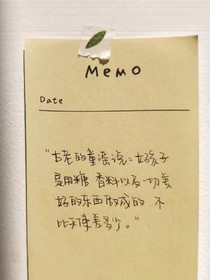 MEMO
Date
“古老的童谣说：女孩子
是用糖 香料以及一切美
好的东西做成的 不
比天使差多少。”